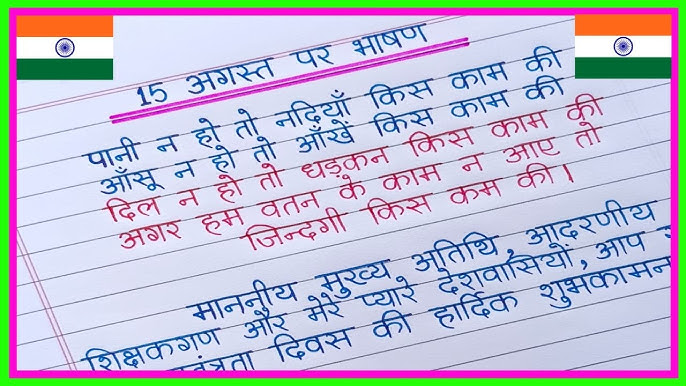 15 अगस्त पर भाषण
पानी न हो तो नदियाँ किस काम की
आँसू न हो तो आँखें किस काम की
दिल न हो तो धड़कन किस काम की
अगर हम वतन के काम न आए तो
जिन्दगी किस कम की।
माननीय मुख्य अतिथि, आदरणीय
शिक्षकगण और मेरे प्यारे देशवासियों, आप
दिवस की हार्दिक